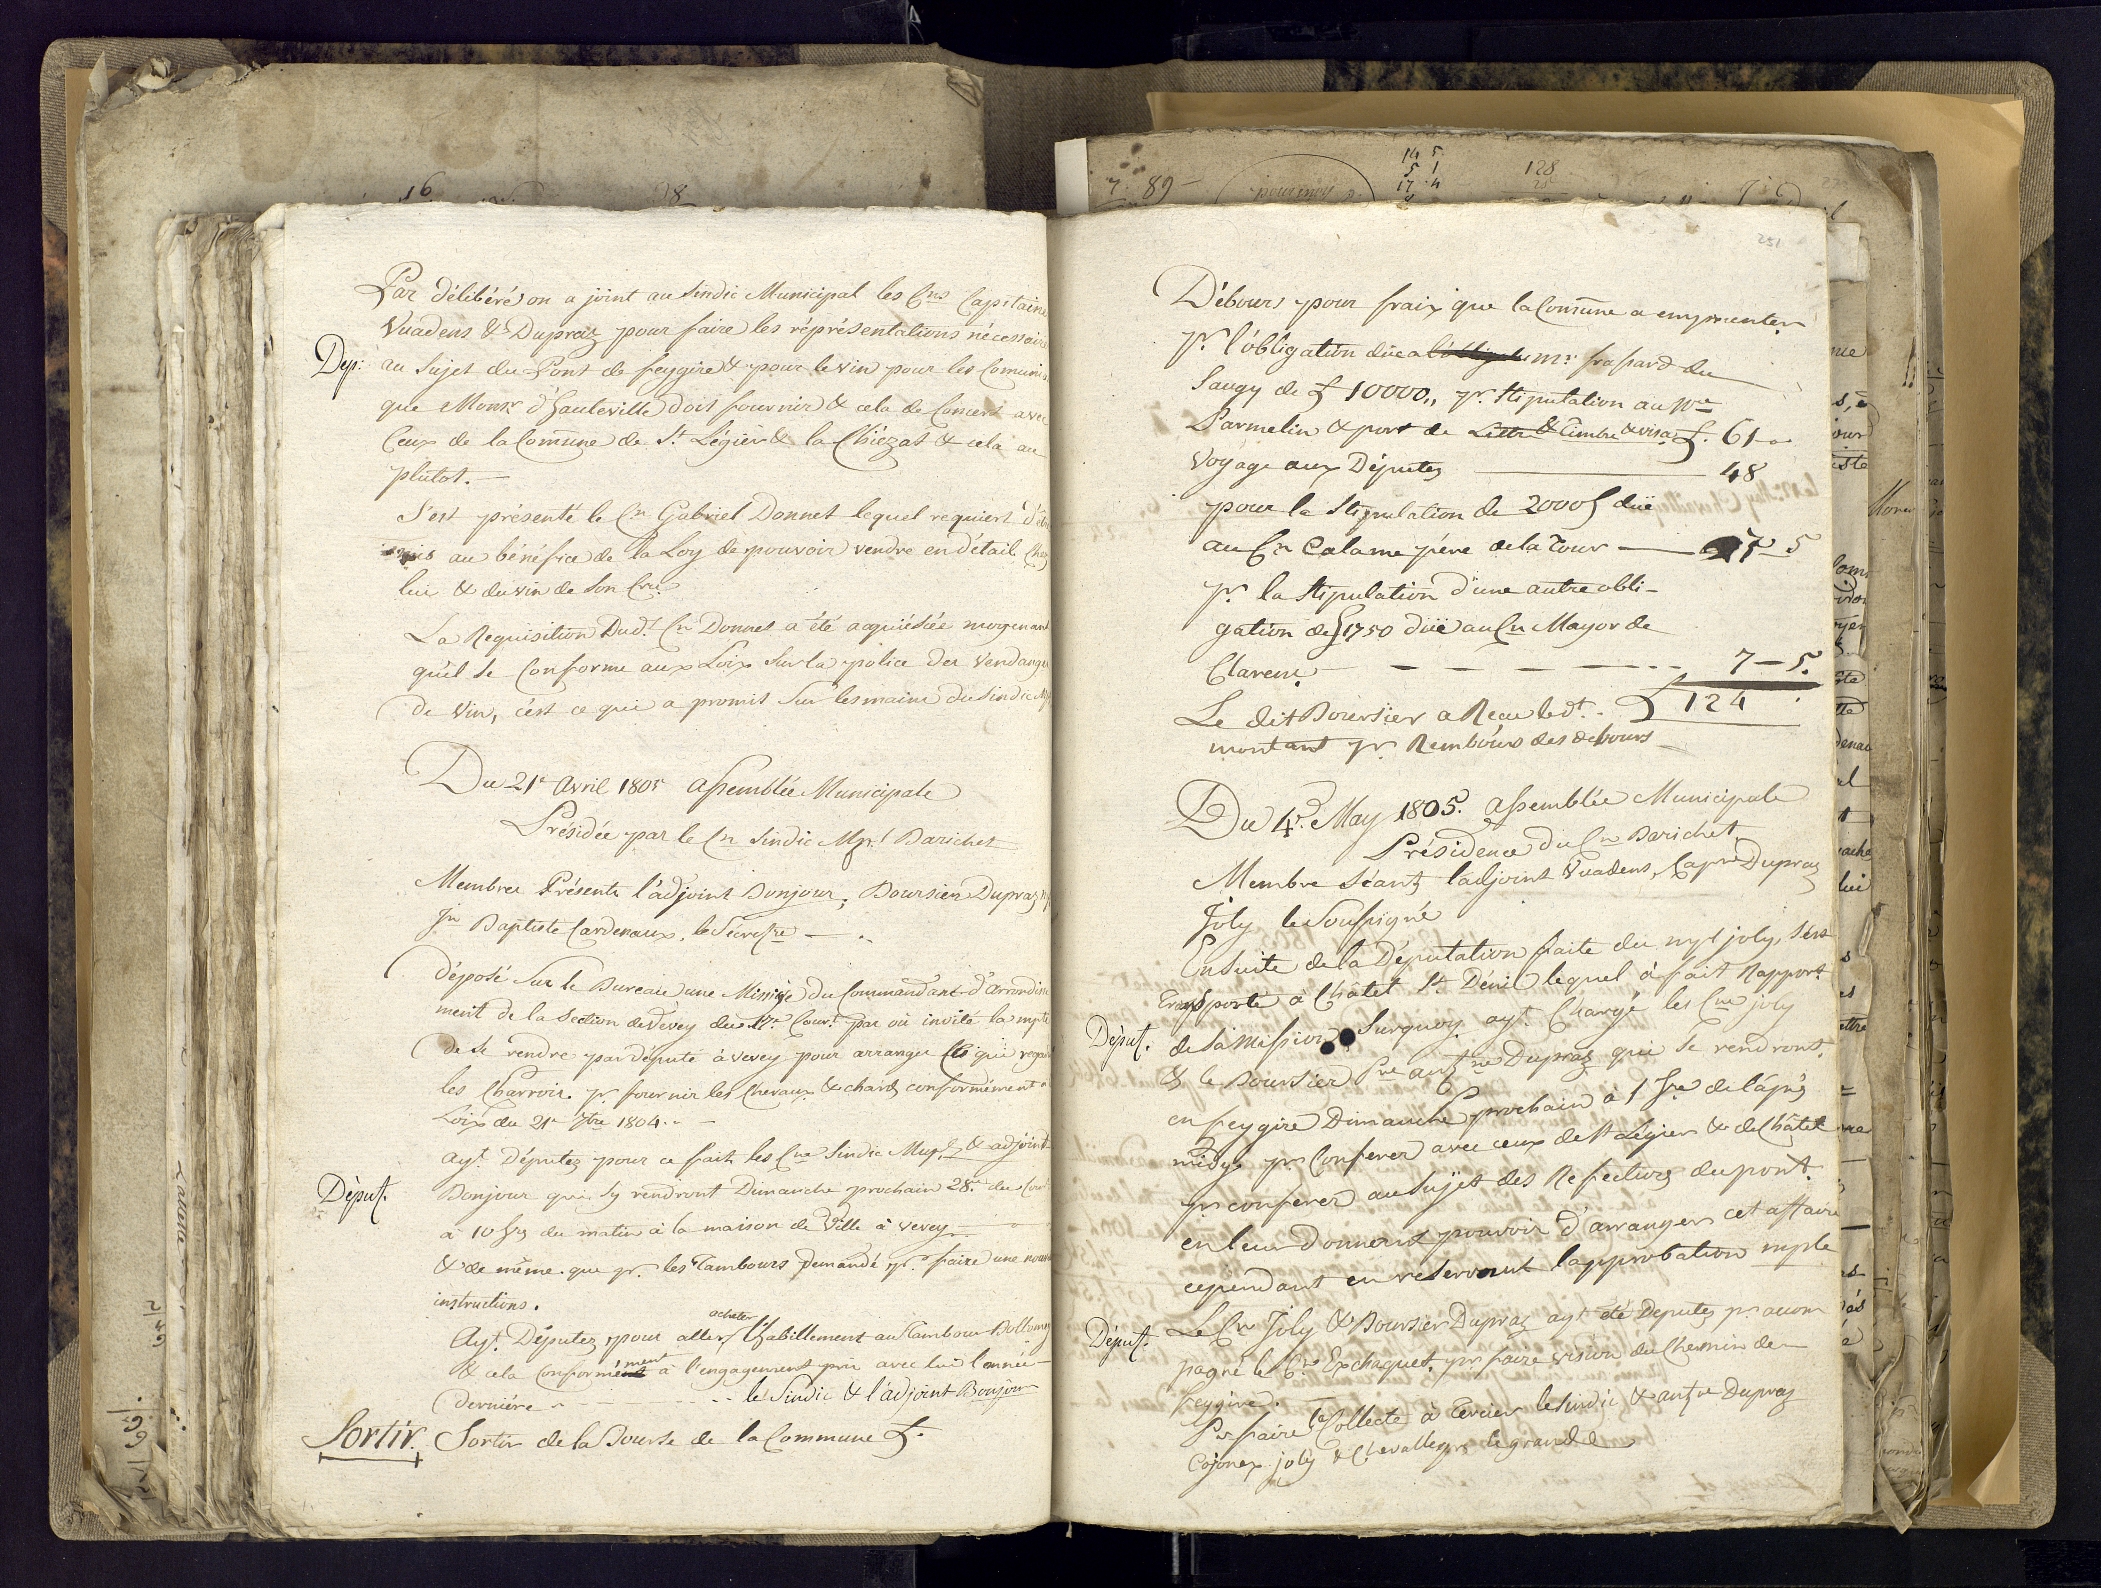 Par délibéré on a joint au Sindic Municipal les Cns Capitaine
Vuadens & Dupraz pour faire les réprésentations nécessaire
Dep: au Sujet du Pont de feygire & pour le vin pour les Comuni
que Monsr d'hauteville dois fournir & cela de Concert avec
Ceux de la Comune de St Légier & la Chiézaz & cela au
plutot.
S'est présenté le Cn Gabriel Donnet lequel requiert d'être
au bénéfice de la Loy de pouvoir vendre en détail Chez
lui & du vin de Son Cru
La Requisition Dudt Cn Donnet a été acquiésée moyenant
qu'il se Conforme aux Loix Sur la police des Vendange
de Vin, c'ést ce qui a promit Sur les mains du Sindic
Du 21e Avril 1805 assemblée Municipale
Présidée par le Cn Sindic Mpl Barichet
Membres Présents l'adjoint Bonjour, Boursier Dupraz
Jn Baptiste Cardenaux, le Sécretre
déposé Sur le Bureau une Missive du Commandant d'arrondisse
ment de la Section de Vevey du 17e Court par où invité la mplté
de Se rendre par député à Vevey pour arranger ce qui regarde
les Charrois pr. fournir les Chevaux & chards conformément a
Loix du 21e 7bre 1804
Députt. ayt. Députez pour ce fait les Cns Sindic Mupl & adjoint
Bonjour qui Sy rendront Dimanche prochain 28e du Cour
à 10 hrs du matin à la maison de Ville à Vevey
& de même que pr. les Tambours demandé pr. faire une nouv
instructions.
Ayt. Députez pour aller acheter l'habillement au Tambour
& cela Conformément à l'engagement pris avec lui l'année
derniére le Sindic & l'adjoint Bonjour
Sortir. Sortir de la Bourse de la Commune £.
251
Débours pour fraix que la Comune a enprunter
pr. l'obligation düe a Mr frossard du
Saugy de £ 10000,, pr. Stipulation au Nre
Parmelin & port de Lettre & timbre & visa £. 61
Voyage aux Députez 48
pour la Stipulation de 2000£ düe
au Cn Calame pére de la Tour 7 5
pr. la Stipulation d'une autre obli-
gation de £1750 düe au Cn Mayor de
Clarens 7 - 5.
Le dit Boursier a Reçu ledt. £ 124
montant pr Rembours des debours
Du 4e. May 1805. assemblée Municipale
Présidence du Cn Barichet
Membre Séantz l'adjoint Vuadens, Capne Dupraz
Joly le Soussigné
Ensuite de la Députation faite du mpl joly, S'est
transporté à Châtel St Dénis lequel à fait Rapport
Déput. de Sa Mission Surquoy ayt. Chargé les Cns joly
& le Boursier Dupraz qui Se rendront
en feygire Dimanche prochain à 1 hre de l'aprés
midy pr Conferer avec ceux de St Légier & de Châtel
pr conferer au Sujet des Refections du pont
en leur Donnent pouvoir d'arranger cet affaire
cependant en reservant l'approbation mple
Déput. Le Cn Joly & Boursier Dupraz ayt été Deputez pr acom
pagné le Cn Exchaquet, pr faire vision du Chemin de
feygire.
Pr faire la Collecte à Tercier le Sindic & Dupraz
Cojonex joly & Chevalley pr le grand